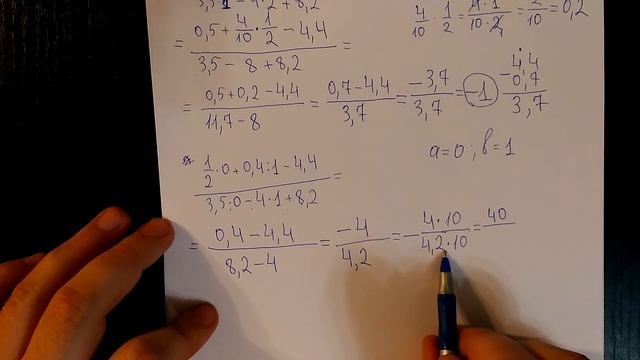 3,5·1 - 4·2 + 8,2
= (0,5 + 4/10 · 1/2 - 4,4) / (3,5 - 8 + 8,2) =
4/10 · 1/2 = 4·1 / 10·2 = 2/10 = 0,2
= (0,5 + 0,2 - 4,4) / (11,7 - 8) = (0,7 - 4,4) / 3,7 = -3,7 / 3,7 = -1
4,4
- 0,7
3,7
a=0 ; b=1
(1/2 · 0 + 0,4 : 1 - 4,4) / (3,5 : 0 - 4·1 + 8,2) =
= (0,4 - 4,4) / (8,2 - 4) = -4 / 4,2 = - 4·10 / 4,2·10 = 40